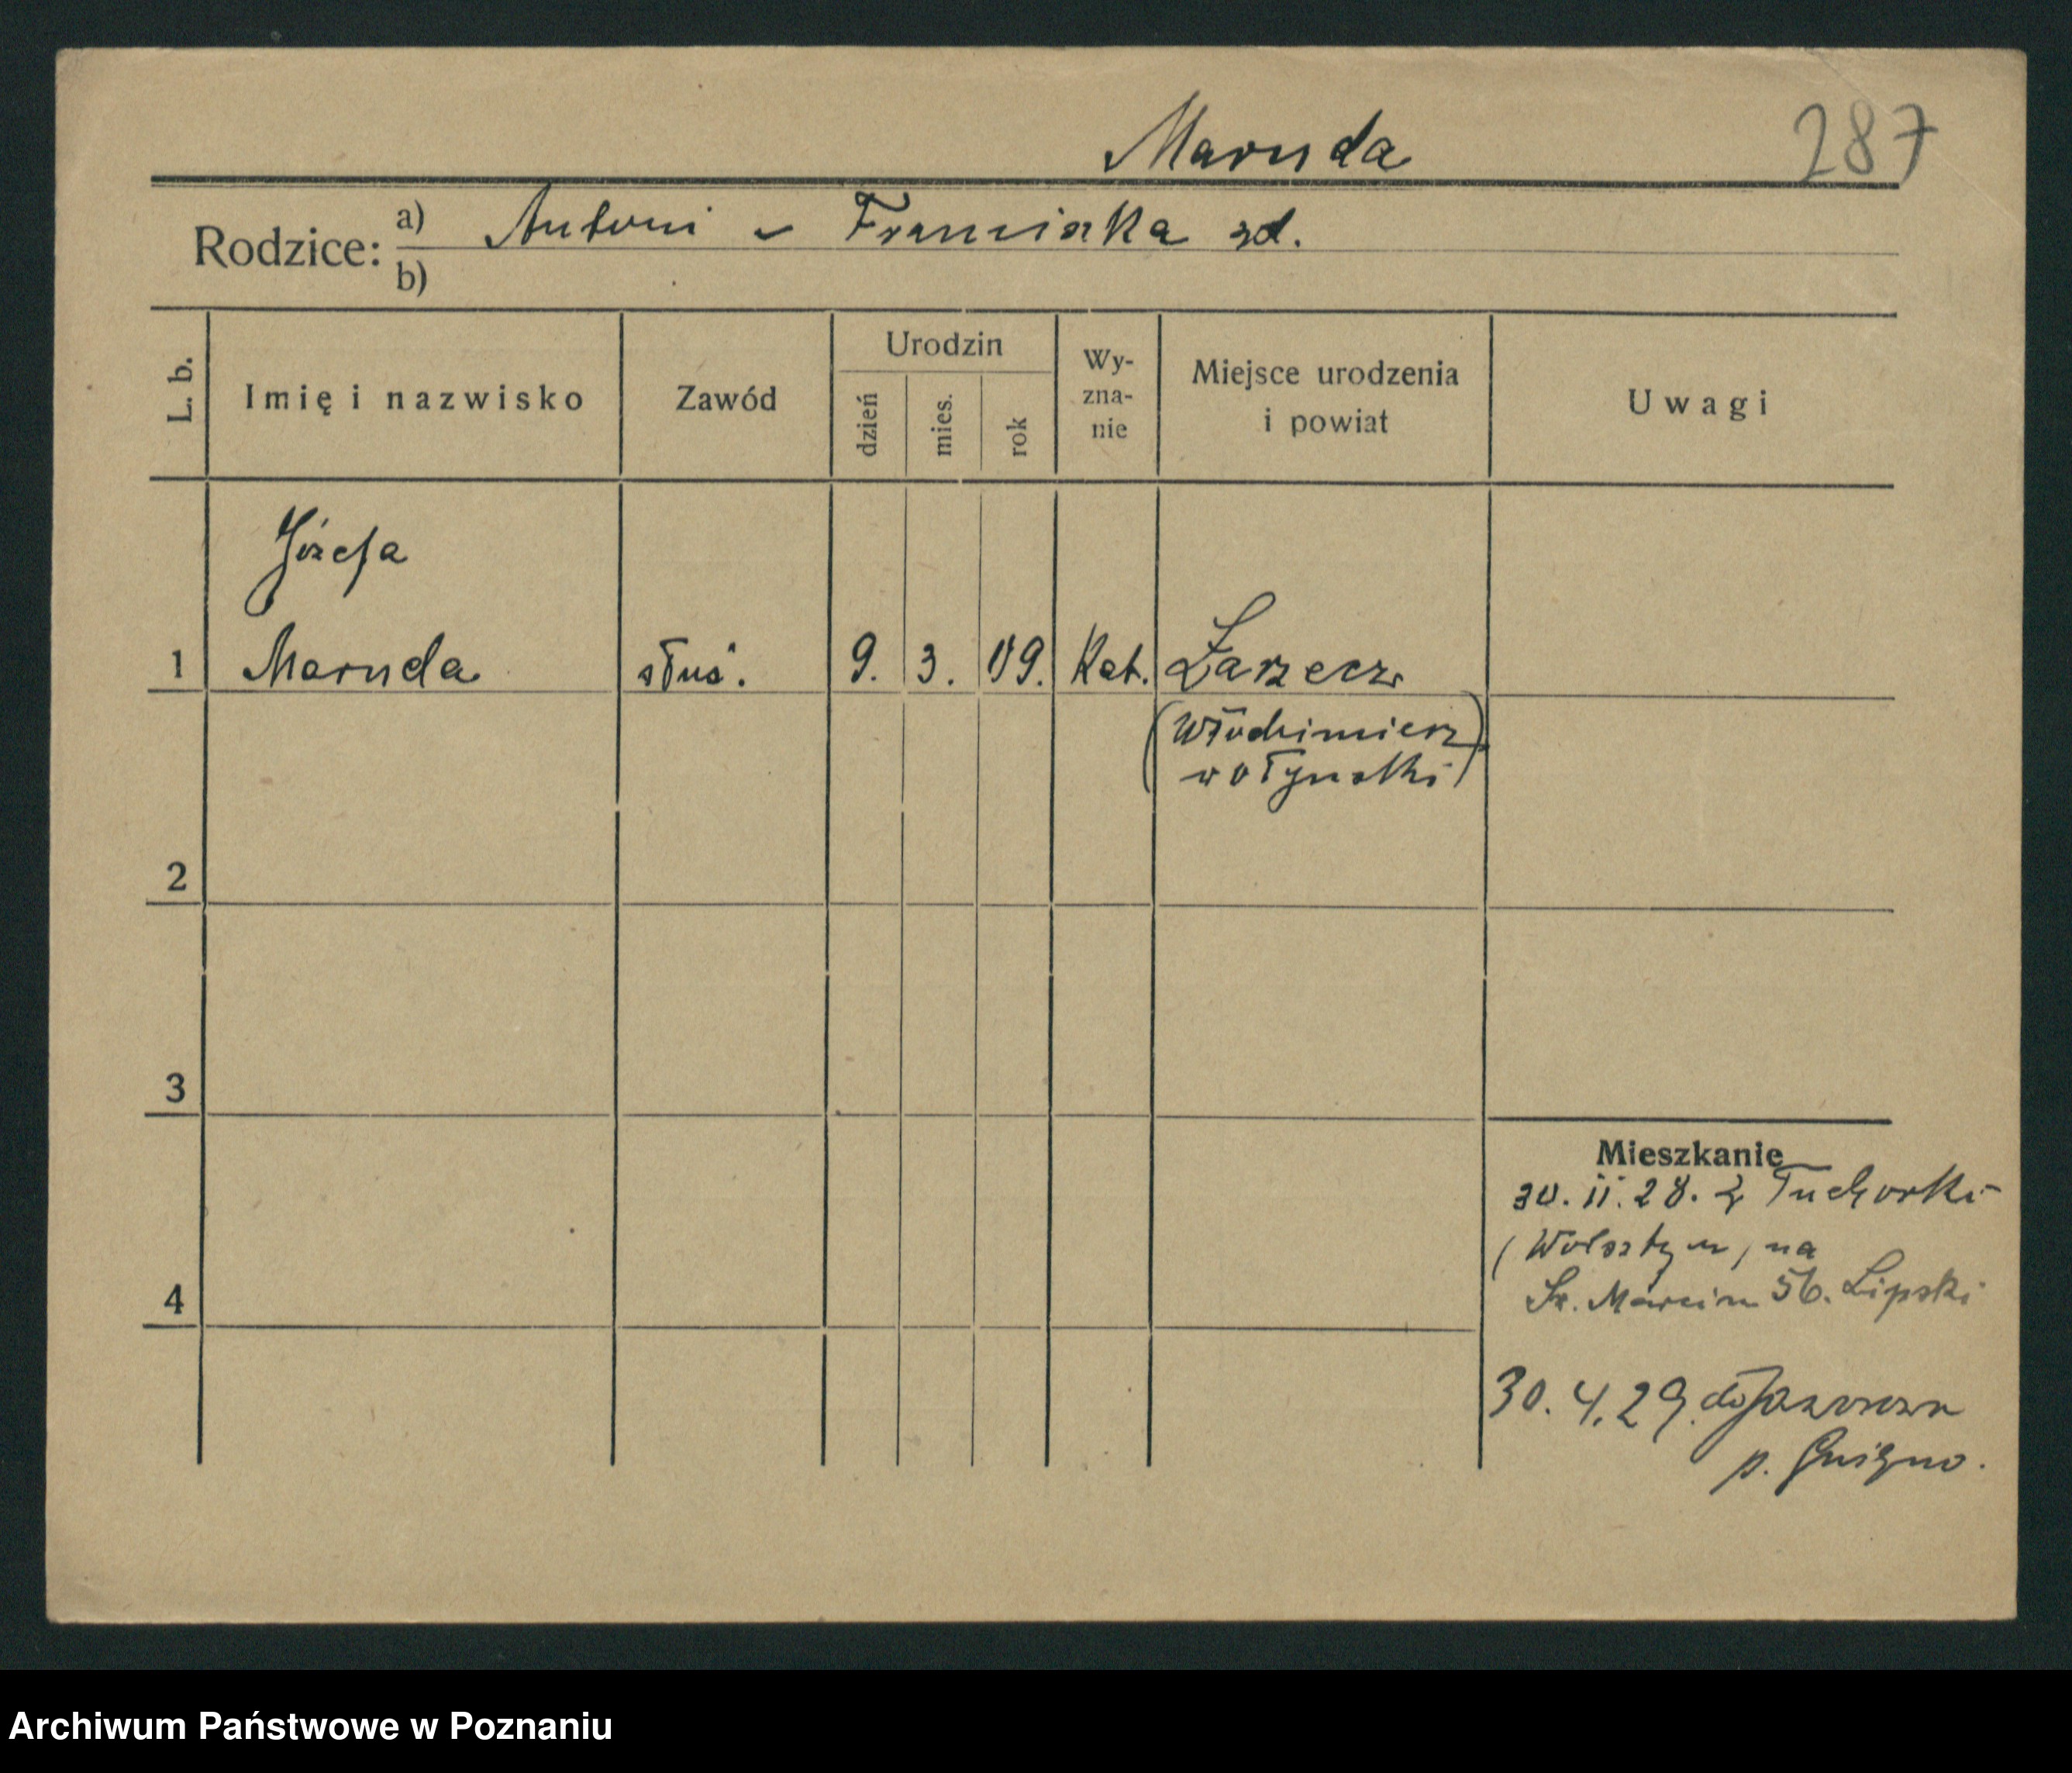 Maruda
287
Rodzice: a) Antoni – Franciszka zd.
b)
L. b.
Imię i nazwisko
Zawód
Urodzin
dzień
mies.
rok
Wy-
zna-
nie
Miejsce urodzenia
i powiat
Uwagi
Józefa
1 Maruda służ. 9. 3. 09. Kat.
(Włodzimierz
wołyński)
2
3
4
Mieszkanie
30. 11. 28. z Tuchorki
(Wolsztyn) na
Św. Marcin 56. Lipski
30. 4. 29. do
p. Gniezno.
Archiwum Państwowe w Poznaniu